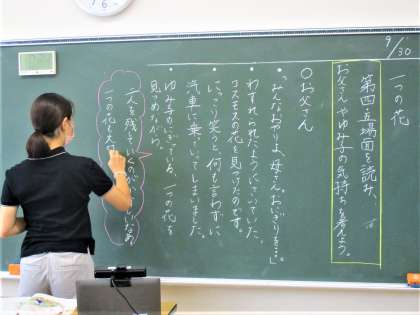 9/30
一つの花
第四・五場面を読み、
お父さんやゆみ子の気持ちを考えよう。
○お父さん
・「みんなおやりよ、母さん。おにぎりを…。」
・わすれられたようにさいていた
コスモスの花を見つけたのです。
・にっこり笑うと何も言わずに、
汽車に乗って行ってしまいました。
・ゆみ子のにぎっている、一つの花を
見つめながら。
二人を残していくのが
一つの花を